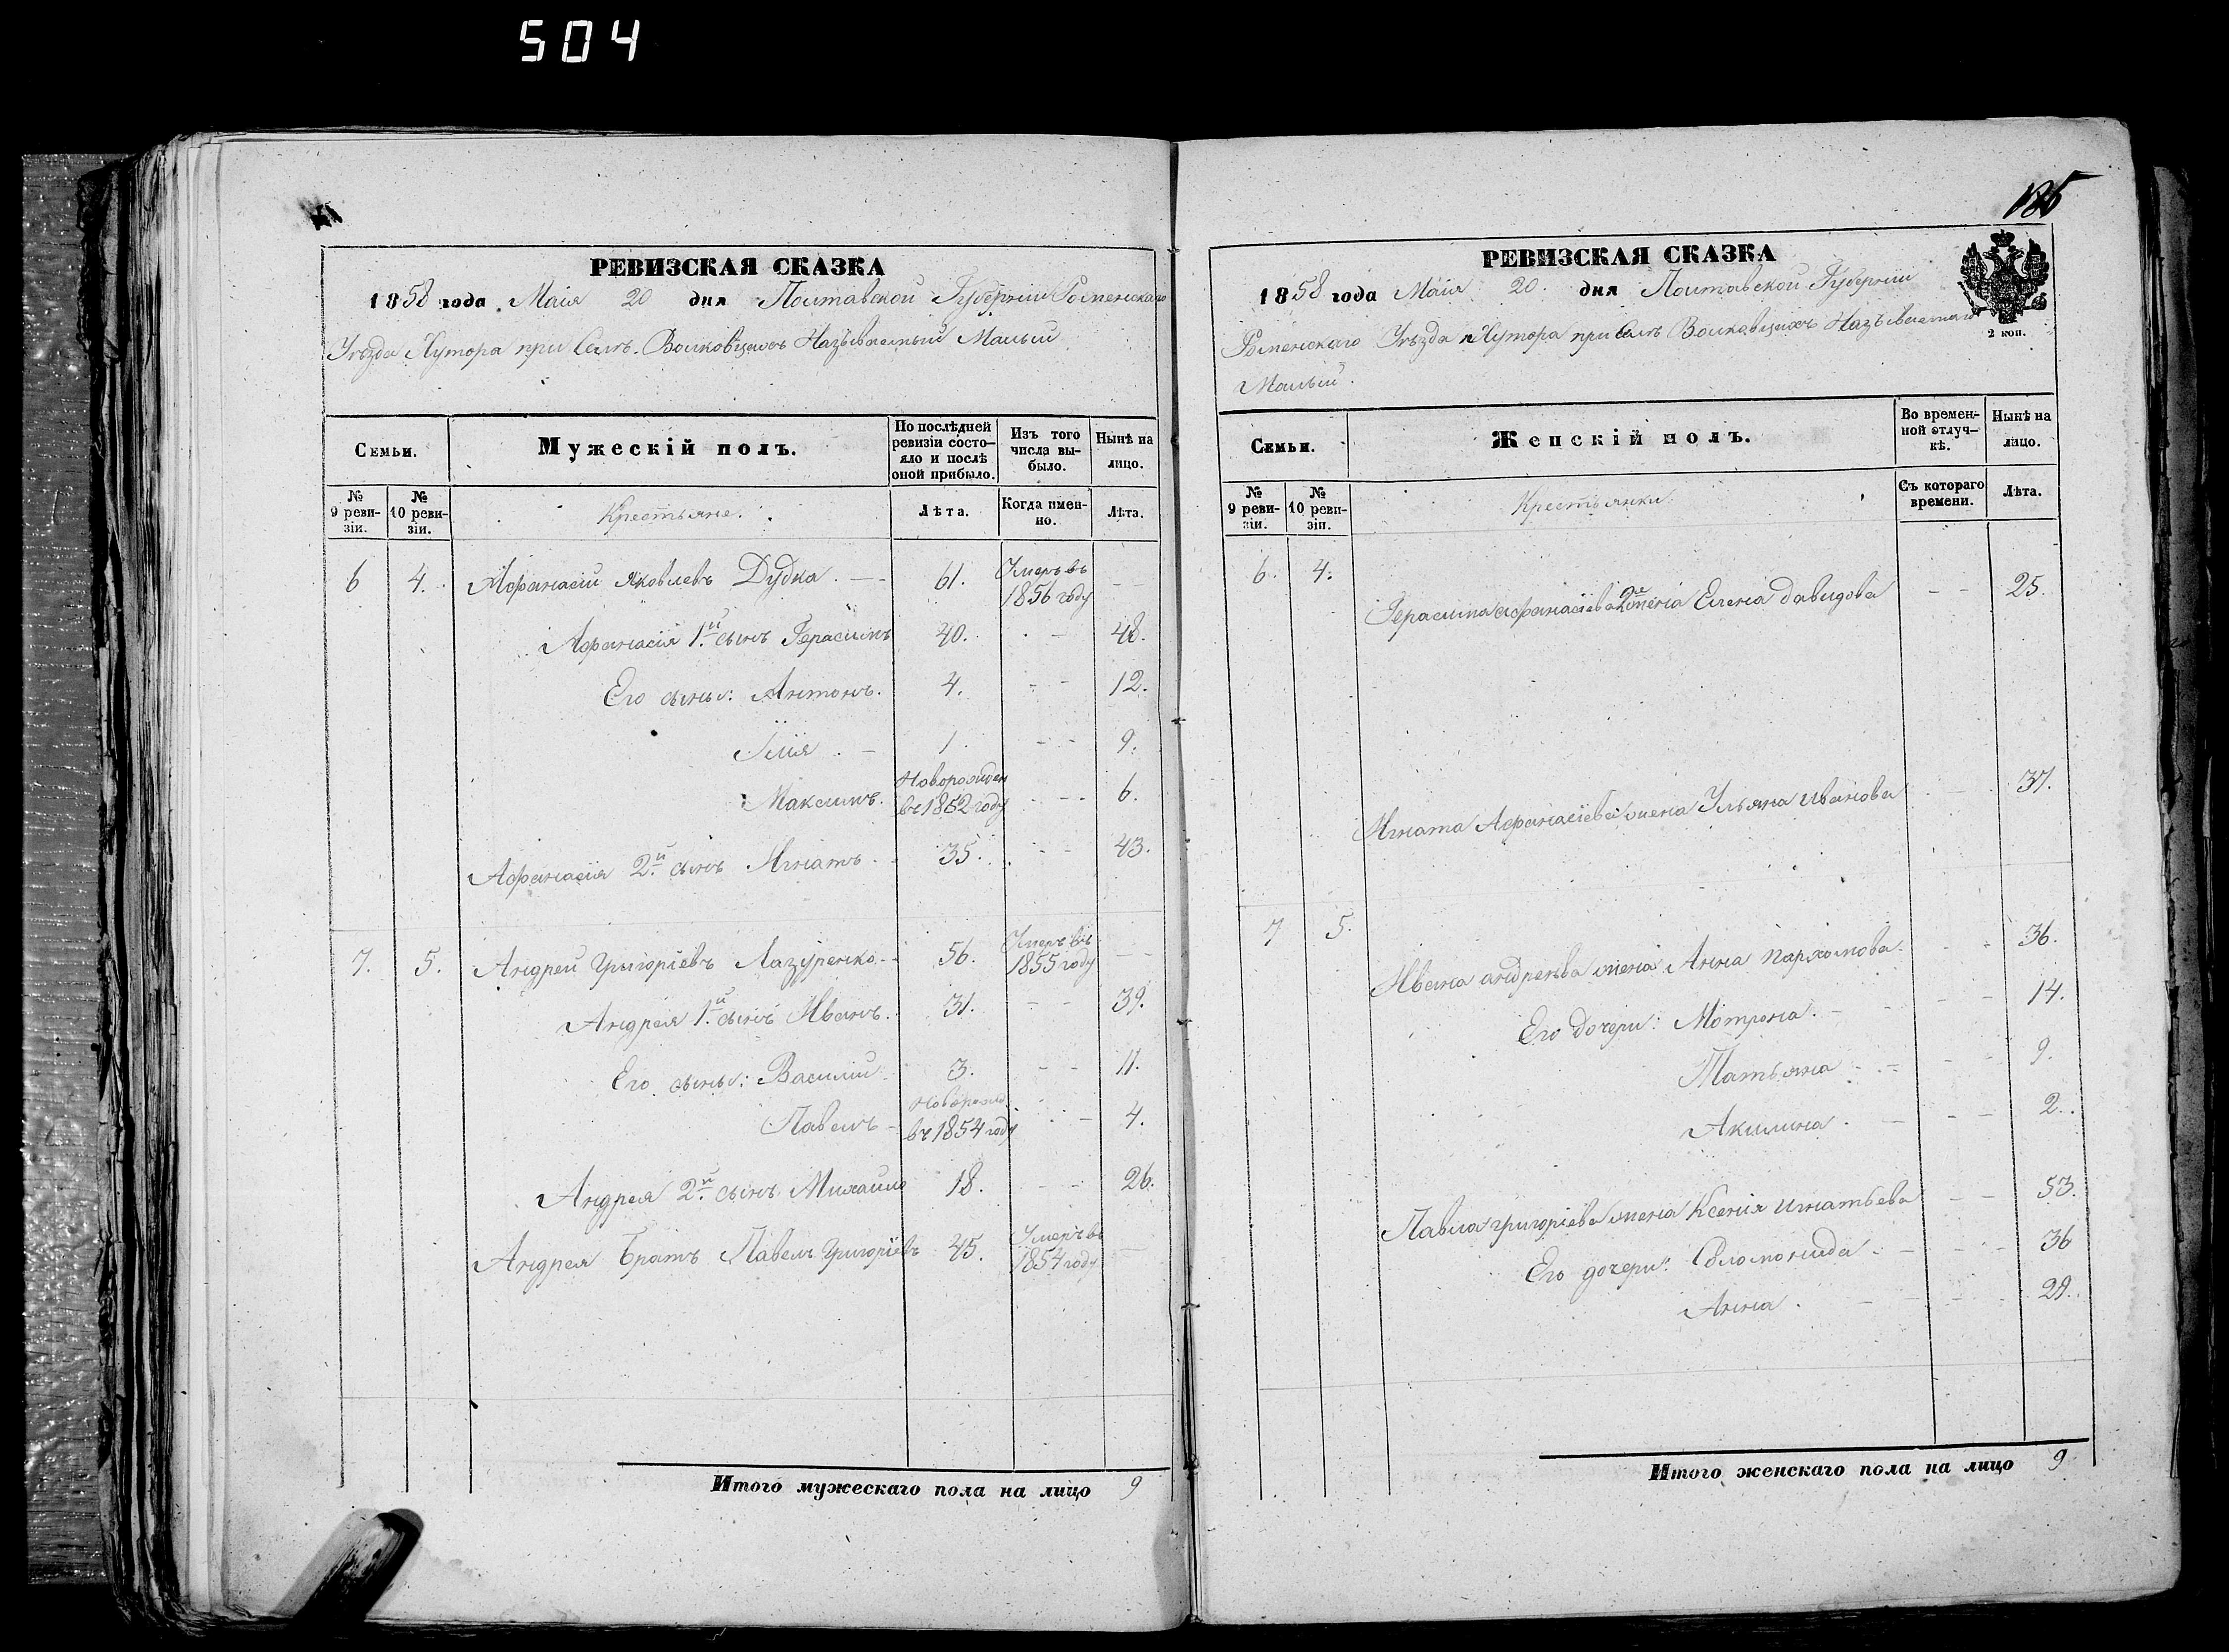 504
РЕВИЗСКАЯ СКАЗКА
1858 года Маія 20 дня Полтавской Губерніи Роменскаго
Уѣзда Хутора при Селѣ Волковцахъ Называемый Малый
Семьи.
Мужескій полъ.
По послѣдней ревизіи состо-
яло и послѣ
оной прибыло.
Изъ того
числа вы-
было.
Нынѣ на
лицо.
№ 9 реви-
зіи.
№ 10 реви-
зіи.
Крестьяне.
Лѣта.
Когда имен-
но.
Лѣта.
6 4. Афанасій Яковлевъ Дудка. 61. Умеръ въ 1856 году
Афанасія 1й сынъ Герасимъ 40. 48.
Его сыны: Антонъ. 4. 12.
Илія 1. 9.
Максимъ. Новорожден въ 1852 году 6.
Афанасія 2й сынъ Игнатъ 35. 43.
7. 5. Андрей Григоріевъ Лазуренко 56. Умеръ въ 1855 году
Андрея 1й сынъ Иванъ. 31. 39.
Его сыны: Василій 3. 11.
ПавелъЕворожд въ 1854 году 4.
Андрея 2й сынъ Михайло 18. 26.
Андрея Братъ Павелъ Григоріевъ 45. Умеръ въ 1854 году
Итого мужескаго пола на лицо 9
186
РЕВИЗСКАЯ СКАЗКА
2 коп.
1858 года Маія 20. дня Полтавской Губерніи
Роменскаго Уѣзда Хутора при Селѣ Волковцахъ Называемаго
Малый.
Семьи.
Женскій полъ.
Во времен-
ной отлуч-
кѣ.
Нынѣ на
лицо.
№ 9 реви-
зіи.
№ 10 реви-
зіи.
Крестьянки
Съ котораго
времени.
Лѣта.
6. 4. Герасима Афанасіева 2я жена Елена Давидова 25.
Игната Афанасіева жена Ульяна Иванова 37.
7 5. Ивана андреева жена Анна Пархомова. 36.
Его Дочери: Мотрона. 14.
Татьяна 9.
Акилина. 2.
Павла григоріева жена Ксенія Игнатьева 53.
Его дочери: Соломонида. 36
Анна. 29.
Итого женскаго пола на лицо 9